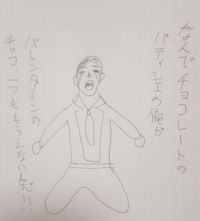 なんでチョコレートの
パティシエの俺が
バレンタインの
チョコ一つももらえないんだ!!